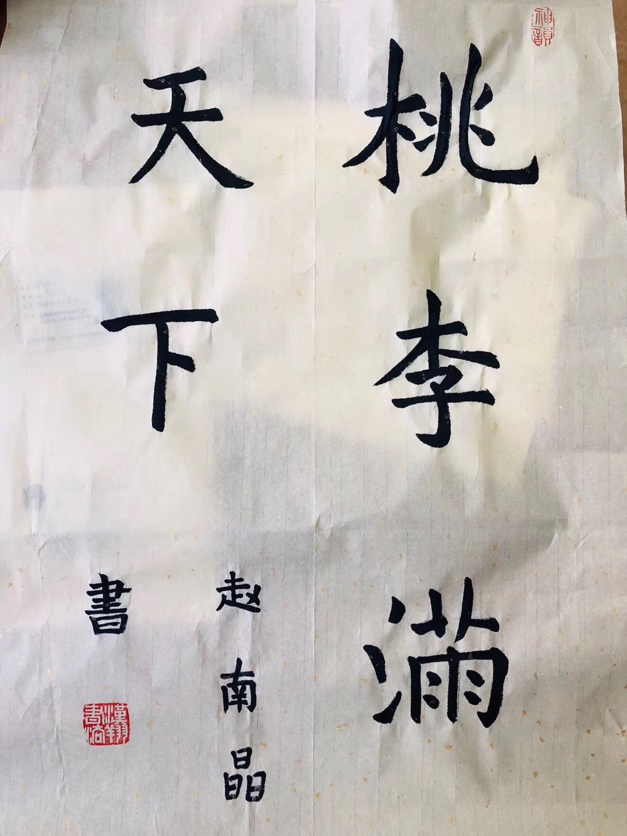 桃李滿
天下
赵南晶
書